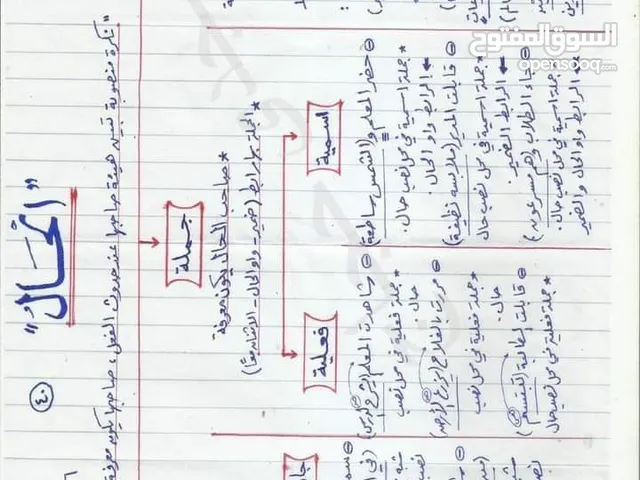 السوق المفتوح
opensooq.com
"الحال"
٤٠
"نكرة منصوبة تبين هيئة صاحبها عند حدوث الفعل، صاحبها يكون معرفة
جملة
* صاحب الحال يكون معرفة
* الجملة لها رابط (ضمير - واو الحال - الاثنان معًا)
اسمية
⊖ حضر المعلم (والشمس ساطعة)
* جملة اسمية في محل نصب حال.
الرابط واو الحال.
⊖ قابلت المدير (ملابسه نظيفة)
* جملة اسمية في محل نصب حال
الرابط الضمير.
⊖ جاء الطلاب (وهم مسرعون)
* جملة اسمية في محل نصب حال.
الرابط واو الحال والضمير
فعلية
⊖ شاهدت المعلم (يشرح الدرس)
* جملة فعلية في محل نصب
حال.
⊖ مررت بالفلاح (يزرع الأرض)
* جملة فعلية في محل نصب
حال.
⊖ قابلت الطالبة (تبتسم)
* جملة فعلية في محل نصب حال